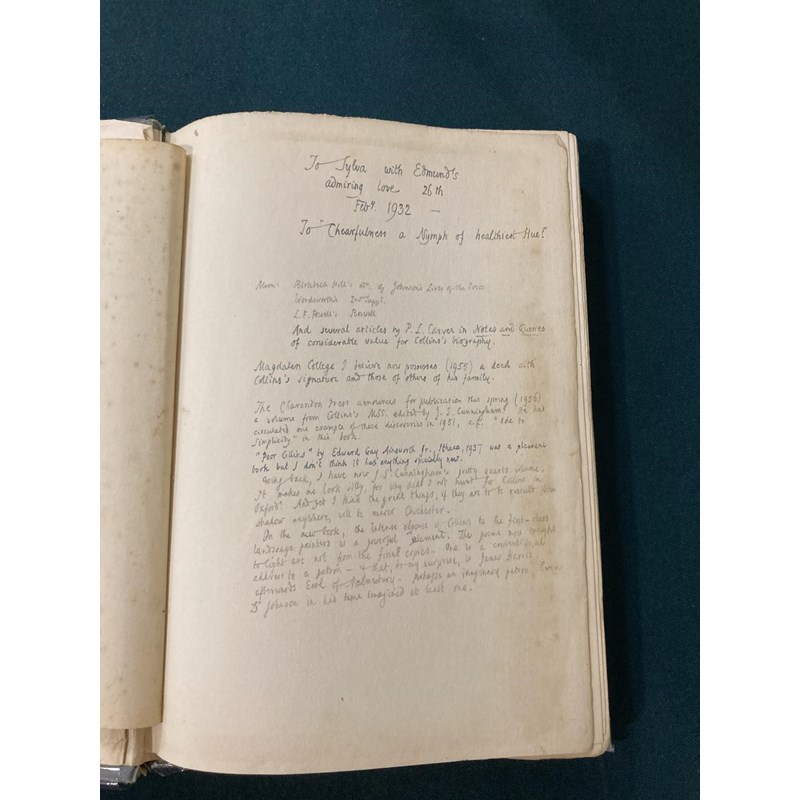 To Sylva with Edmund's
admiring love 26th
Feby. 1932 —
To "Chearfulness a Nymph of healthiest Hue"
Mem: Birkbeck Hill's edn. of Johnson's Lives of the Poets
Wordsworth's
L. F. Powell's Boswell
And several articles by P. L. Carver in Notes and Queries
of considerable value for Collins's biography.
Magdalen College I believe now possesses (1955) a deed with
Collins's signature and those of others of his family.
The Clarendon Press announces for publication this spring (1956)
a volume from Collins's MSS. edited by J. S. Cunningham. He has
circulated one example of these discoveries in 1951, c.f. "Ode to
Simplicity" in this book.
"Poor Collins" by Edward Gay Ainsworth Jr., Ithaca, 1937 was a pleasant
book but I don't think it has anything specially new.
Going back, I have now J. S. Cunningham's pretty quarto volume.
It makes me look silly, for why did I not hunt for Collins in
Oxford? And yet I think the great things, if they are to be rescued from
shadow anywhere, will be under Chichester.
On the new book, the intense response of Collins to the first-class
landscape painters is a powerful element. The poems now brought
to light are not from the final copies. One is a conventional
address to a patron – & that, to my surprise, is James Harris,
afterwards Earl of Malmesbury. Perhaps an imaginary patron. Even
Dr Johnson in his time imagined at least one.